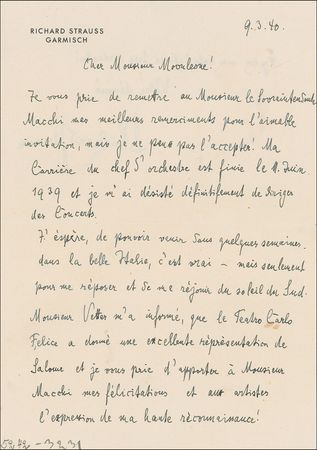 RICHARD STRAUSS
GARMISCH
9.3.40.
Cher Monsieur
Je vous prie de remettre au Monsieur le
Macchi mes meilleurs remerciments pour l'aimable
invitation, mais je ne peux pas l'accepter! Ma
Carrière du chef d'orchestre est finie le 11. Juin
1939 et je m'ai désisté définitifement de diriger
des Concerts.
J'éspère, de pouvoir venir dans quelques semaines
dans la belle Italie, c'est vrai – mais seulement
pour me réposer et de me réjouir du soleil du Sud.
Monsieur m'a informé, que le Teatro Carlo
Felice a donné une excellente réprésentation de
Salome et je vous prie d'apporter à Monsieur
Macchi mes félicitations et aux artistes
l'expression de ma haute réconnaissance!